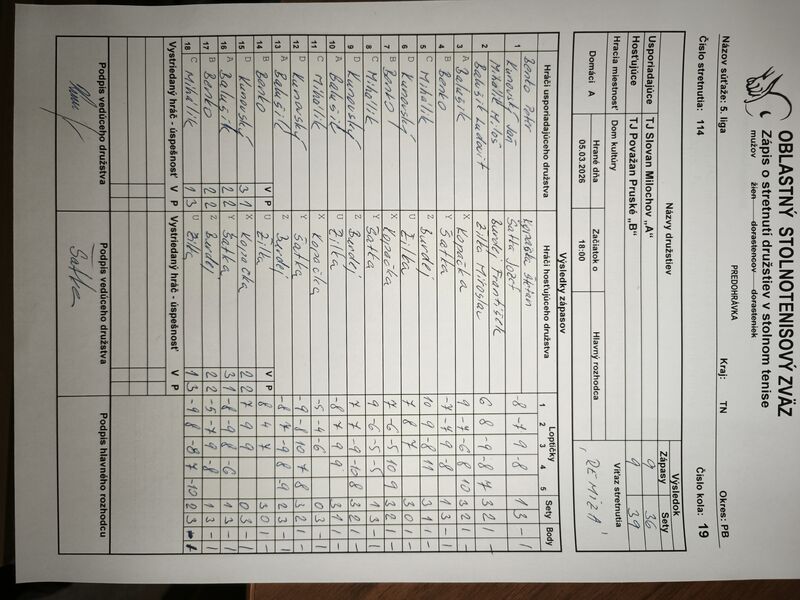 OBLASTNÝ STOLNOTENISOVÝ ZVÄZ
Zápis o stretnutí družstiev v stolnom tenise
mužov žien dorastencov dorasteniek
PREDOHRÁVKA
Názov súťaže: 5. liga Kraj: TN Okres: PB
Číslo stretnutia: 114 Číslo kola: 19
Názvy družstiev Výsledok
Zápasy Sety
Usporiadajúce TJ Slovan Milochov „A“ 9 36
Hosťujúce TJ Považan Pruské „B“ 9 39
Hracia miestnosť Dom kultúry Víťaz stretnutia
Domáci A Hrané dňa Začiatok o Hlavný rozhodca REMÍZA
05.03.2026 18:00
Výsledky zápasov
Hráči usporiadajúceho družstva Hráči hosťujúceho družstva Loptičky Sety Body
1 2 3 4 5
1 Benko Peter Kopačka Štefan
Kunovský Ján Šatka Jozef -8 -7 9 -8 1 3 - 1
2 Mihálik Miloš Burdej František
Balušík Ľudovít Žilka Miroslav 6 8 -9 -8 7 3 2 1 -
3 A Balušík X Kopačka 9 -7 -6 8 10 3 2 1 -
4 B Benko Y Šatka -7 -7 9 -8 1 3 - 1
5 C Mihálik Z Burdej 10 9 -8 11 3 1 1 -
6 D Kunovský U Žilka 7 8 7 3 0 1 -
7 B Benko X Kopačka 7 -6 -5 10 9 3 2 1 -
8 C Mihálik Y Šatka 9 -6 -5 -5 1 3 - 1
9 D Kunovský Z Burdej 7 7 -9 -10 8 3 2 1 -
10 A Balušík U Žilka -8 7 9 9 3 1 1 -
11 C Mihálik X Kopačka -5 -4 -6 0 3 - 1
12 D Kunovský Y Šatka -9 -8 10 7 8 3 2 1 -
13 A Balušík Z Burdej -8 7 -9 8 -9 2 3 - 1
14 B Benko U Žilka 8 4 7 3 0 1 -
V P V P
15 D Kunovský 3 1 X Kopačka 2 2 0 3 - 1
16 A Balušík 2 2 Y Šatka 3 1 -8 -9 8 -6 1 3 - 1
17 B Benko 2 2 Z Burdej 2 2 -5 -7 9 -8 1 3 - 1
18 C Mihálik 1 3 U Žilka 1 3 -9 8 -8 7 -10 2 3 - 1
Vystriedaný hráč - úspešnosť V P Vystriedaný hráč - úspešnosť V P
Podpis vedúceho družstva Podpis vedúceho družstva Podpis hlavného rozhodcu
Šatka